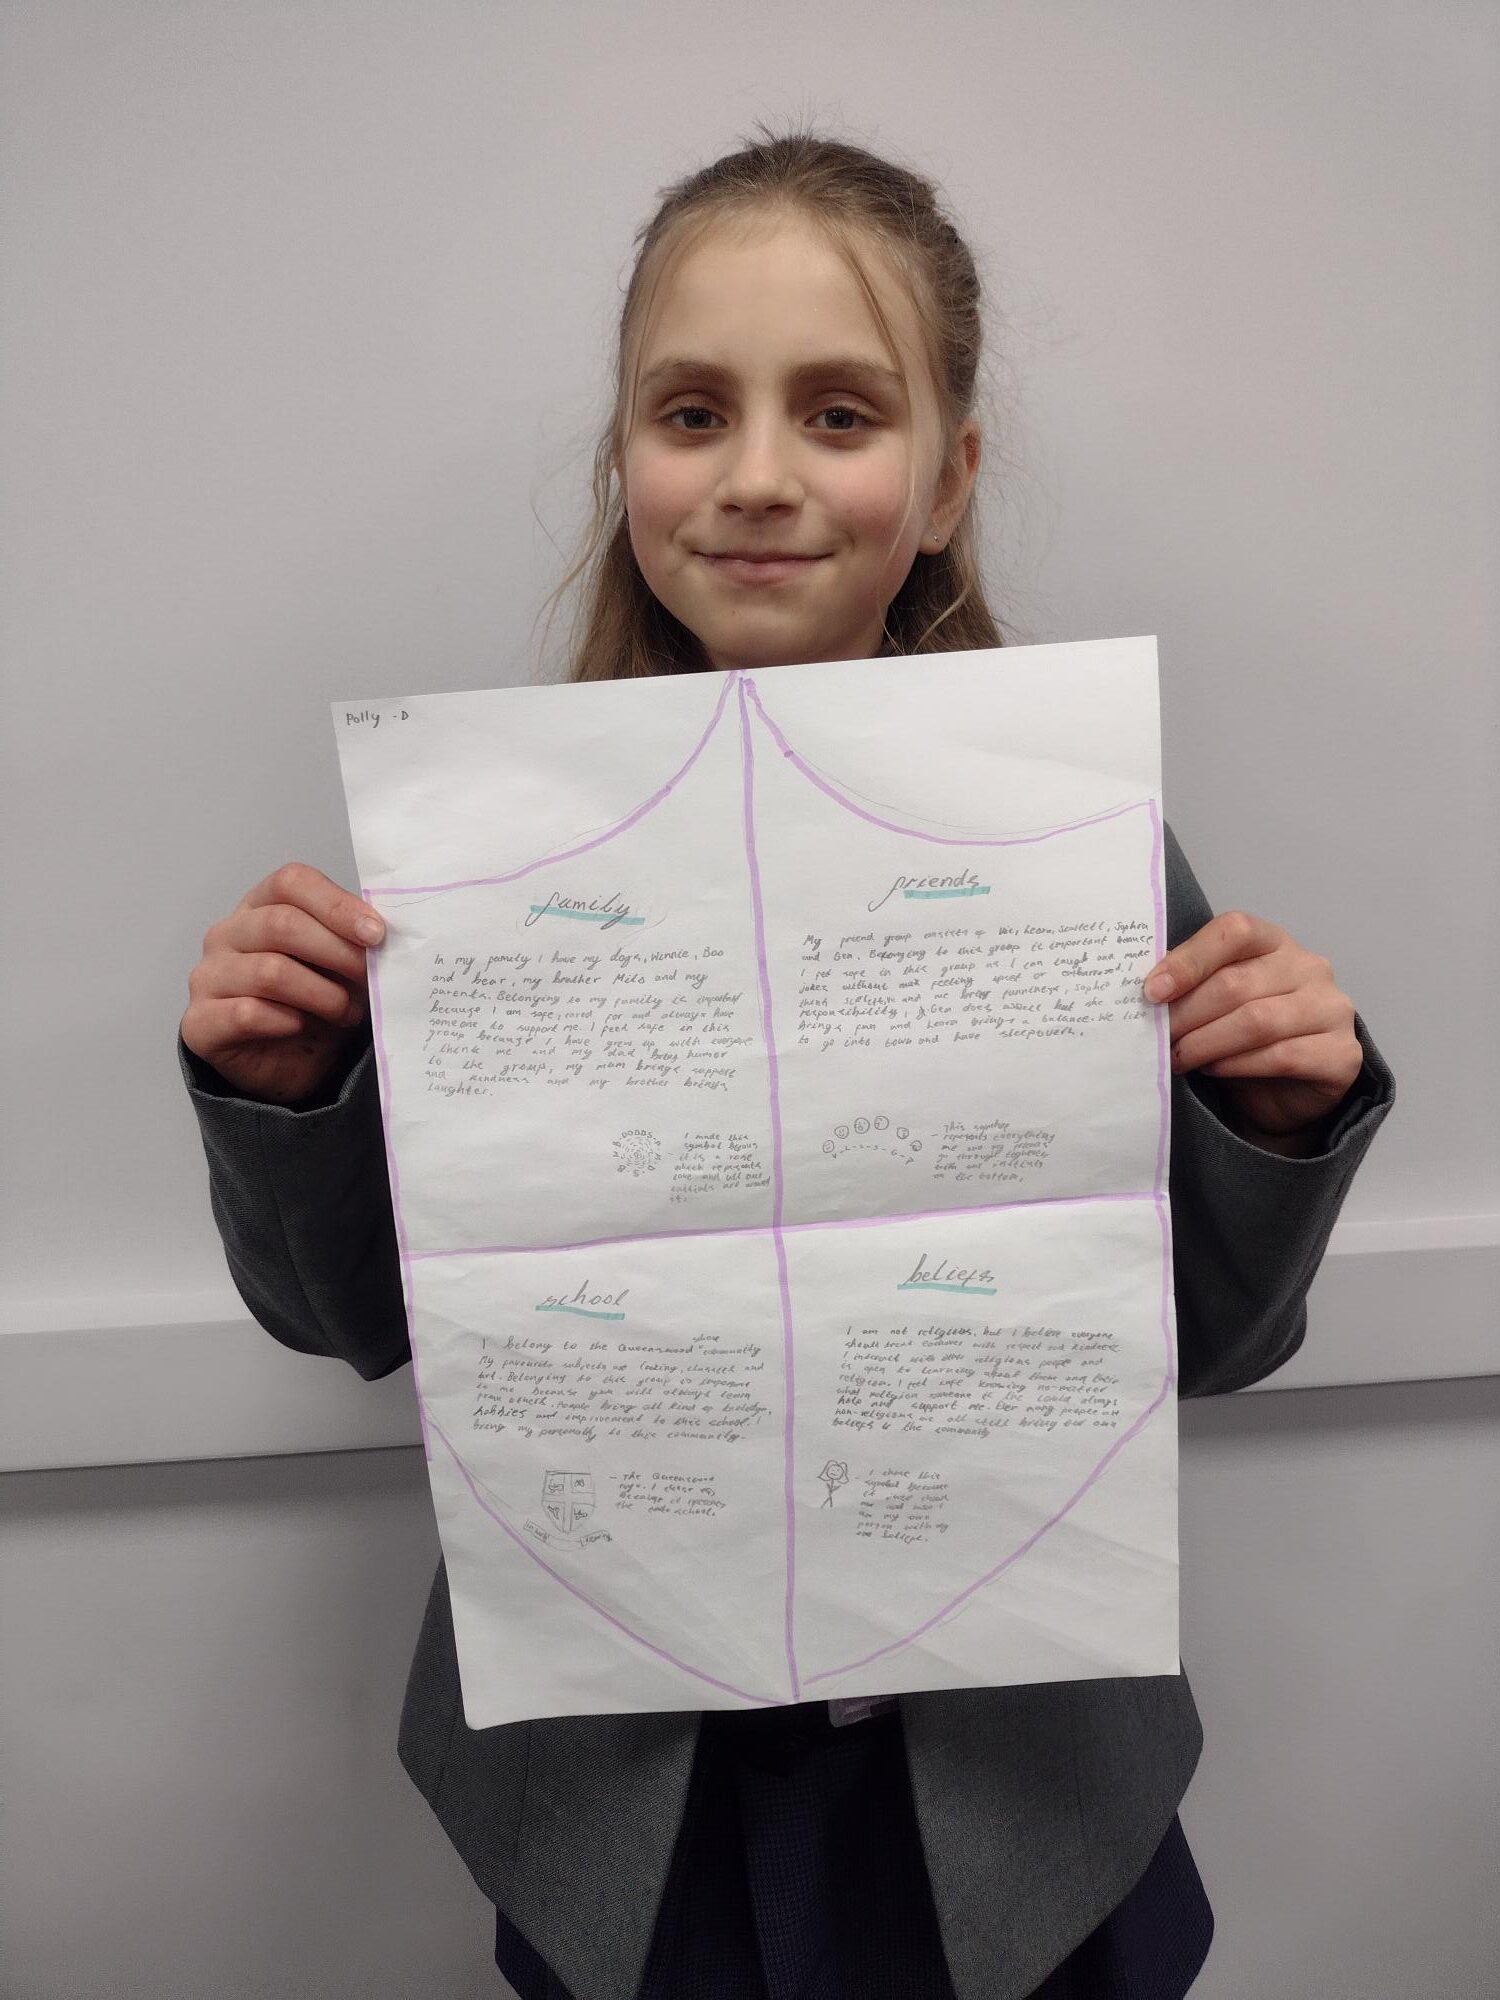 Polly - D
family
In my family I have my dogs, Winnie, Boo
and bear, my brother Milo and my
parents. Belonging to my family is important
because I am safe, cared for and always have
someone to support me. I feel safe in this
group because I have grew up with everyone
I think me and my dad bring humor
to the group, my mum brings support
and kindness and my brother brings
laughter.
I made this
symbol
it is a rose
which represents
love and all our
initials are around
it.
friends
My friend group consists of Leora, Scarlett, Sophia
and Gen. Belonging to this group is important because
I feel safe in this group as I can laugh and make
jokes without feeling upset or embarrased. I
think and me bring funniness, Sophia brings
responsibility, Gen does aswell but she also
brings fun and Leora brings a balance. We like
to go into town and have sleepovers.
This symbol
represents everything
me and my friends
go through together
with our initials
on the bottom.
school
I belong to the Queenswood whole community
My favourite subjects are cooking, classics and
art. Belonging to this group is important
to me because you will always learn
from others. People bring all kind of
hobbies and improvement to this school. I
bring my personally to this community.
- The Queenswood
logo. I chose this
because it represents
the school.
beliefs
I am not religious, but I believe everyone
should treat eachover with respect and kindness.
I interact with other religious people and
is open to learning about them and their
religion. I feel safe knowing no-matter
what religion someone is the could always
help and support me. many people are
non-religious we all still bring our own
beliefs to the community
- I chose this
symbol because
it
me and how I
am my own
person with my
own beliefs.